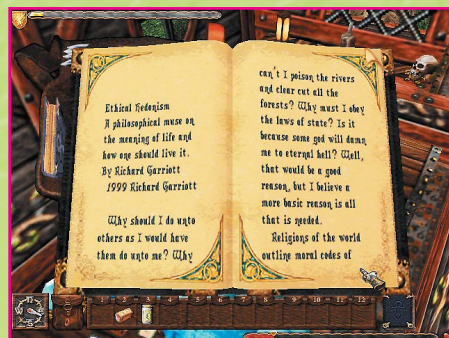 Ethical Hedonism
A philosophical muse on
the meaning of life and
how one should live it.
By Richard Garriott
1999 Richard Garriott
Why should I do unto
others as I would have
them do unto me? Why
can't I poison the rivers
and clear cut all the
forests? Why must I obey
the laws of state? Is it
because some god will damn
me to eternal hell? Well,
that would be a good
reason, but I believe a
more basic reason is all
that is needed.
Religions of the world
outline moral codes of
1 2 3 4 5 6 7 8 9 10 11 12